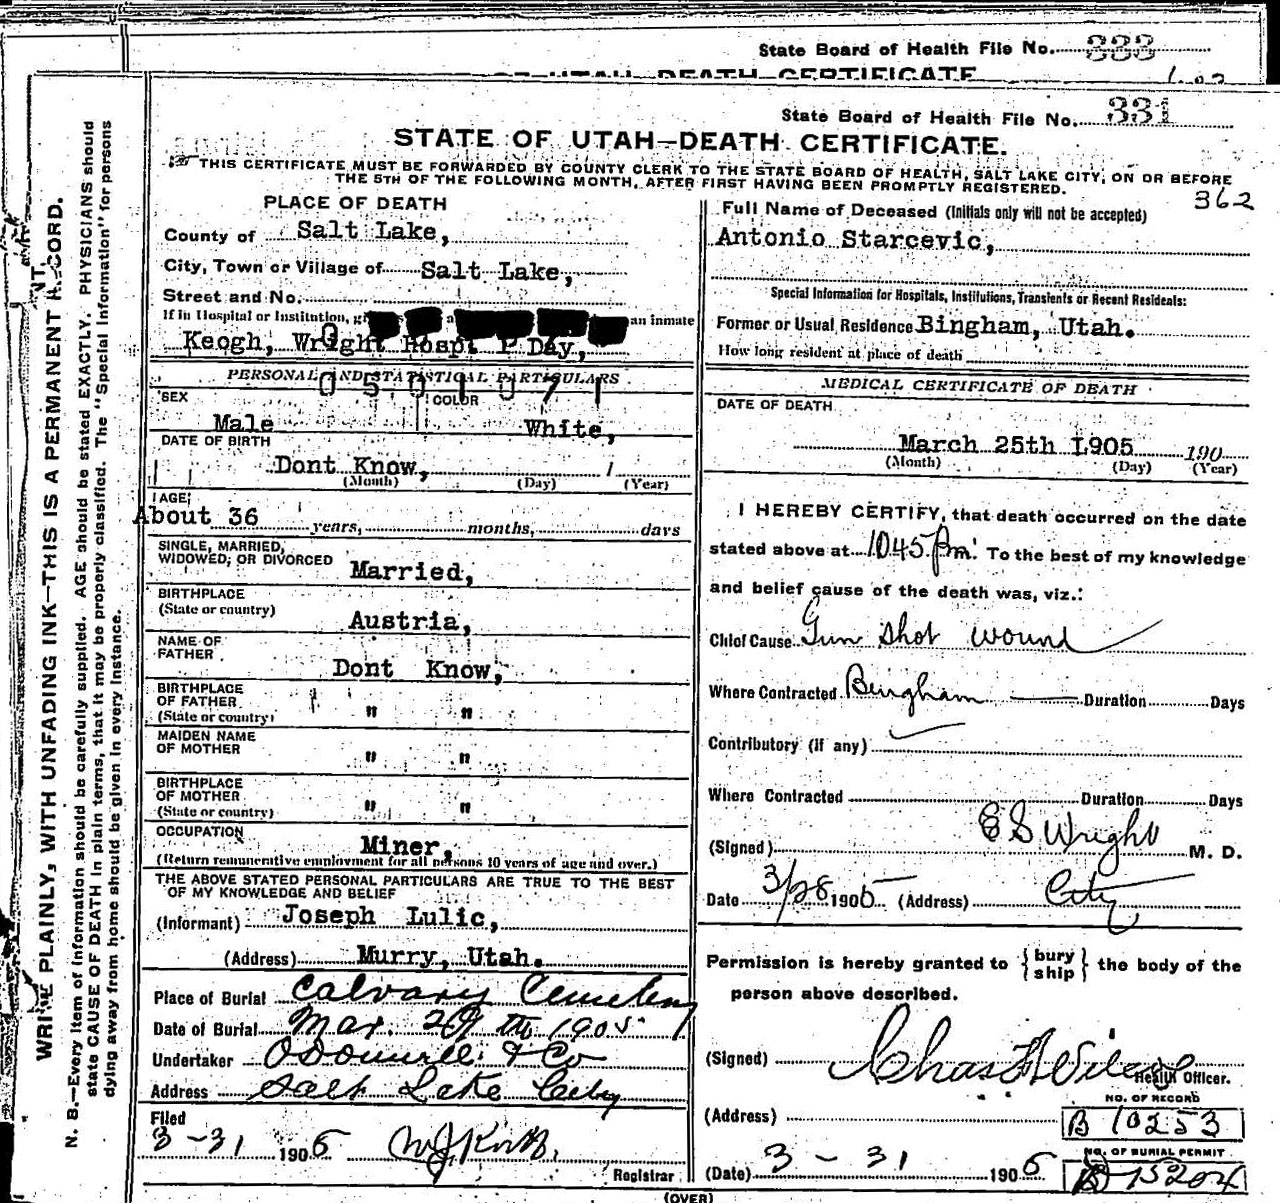 State Board of Health File No. 333
OF UTAH DEATH CERTIFICATE
State Board of Health File No. 331
STATE OF UTAH—DEATH CERTIFICATE.
THIS CERTIFICATE MUST BE FORWARDED BY COUNTY CLERK TO THE STATE BOARD OF HEALTH, SALT LAKE CITY, ON OR BEFORE
THE 5TH OF THE FOLLOWING MONTH, AFTER FIRST HAVING BEEN PROMPTLY REGISTERED.
362
WRITE PLAINLY, WITH UNFADING INK—THIS IS A PERMANENT RECORD.
N. B.—Every item of information should be carefully supplied. AGE should be stated EXACTLY. PHYSICIANS should
state CAUSE OF DEATH in plain terms, that it may be properly classified. The "Special Information" for persons
dying away from home should be given in every instance.
PLACE OF DEATH
County of Salt Lake,
City, Town or Village of Salt Lake,
Street and No.
If in Hospital or Institution, an inmate
Keogh, Wright Hosp. 1 Day,
PERSONAL AND STATISTICAL PARTICULARS
0501971
SEX COLOR
Male White,
DATE OF BIRTH
Dont Know,
(Month) (Day) (Year)
AGE
About 36 years, months, days
SINGLE, MARRIED,
WIDOWED, OR DIVORCED Married,
BIRTHPLACE
(State or country) Austria,
NAME OF
FATHER Dont Know,
BIRTHPLACE
OF FATHER
(State or country) " "
MAIDEN NAME
OF MOTHER " "
BIRTHPLACE
OF MOTHER
(State or country) " "
OCCUPATION
Miner,
(Return remunerative employment for all persons 10 years of age and over.)
THE ABOVE STATED PERSONAL PARTICULARS ARE TRUE TO THE BEST
OF MY KNOWLEDGE AND BELIEF
(Informant) Joseph Lulic,
(Address) Murry, Utah.
Place of Burial Calvary Cemetery
Date of Burial Mar. 29th 1905
Undertaker O'Donnell & Co
Address Salt Lake City
Filed
3-31 1905
Registrar
Full Name of Deceased (Initials only will not be accepted)
Antonio Starcevic,
Special Information for Hospitals, Institutions, Transients or Recent Residents:
Former or Usual Residence Bingham, Utah.
How long resident at place of death
MEDICAL CERTIFICATE OF DEATH
DATE OF DEATH
March 25th 1905 190
(Month) (Day) (Year)
I HEREBY CERTIFY, that death occurred on the date
stated above at 1045 Pm. To the best of my knowledge
and belief cause of the death was, viz.:
Chief Cause Gun shot wound
Where Contracted Bingham Duration Days
Contributory (if any)
Where Contracted Duration Days
(Signed) E S Wright M. D.
Date 3/28 1905 (Address) City
Permission is hereby granted to {bury
ship} the body of the
person above described.
(Signed) Chas
Health Officer.
NO. OF RECORD
(Address) B 10253
NO. OF BURIAL PERMIT
(Date) 3-31 1905 B 15204
(OVER)